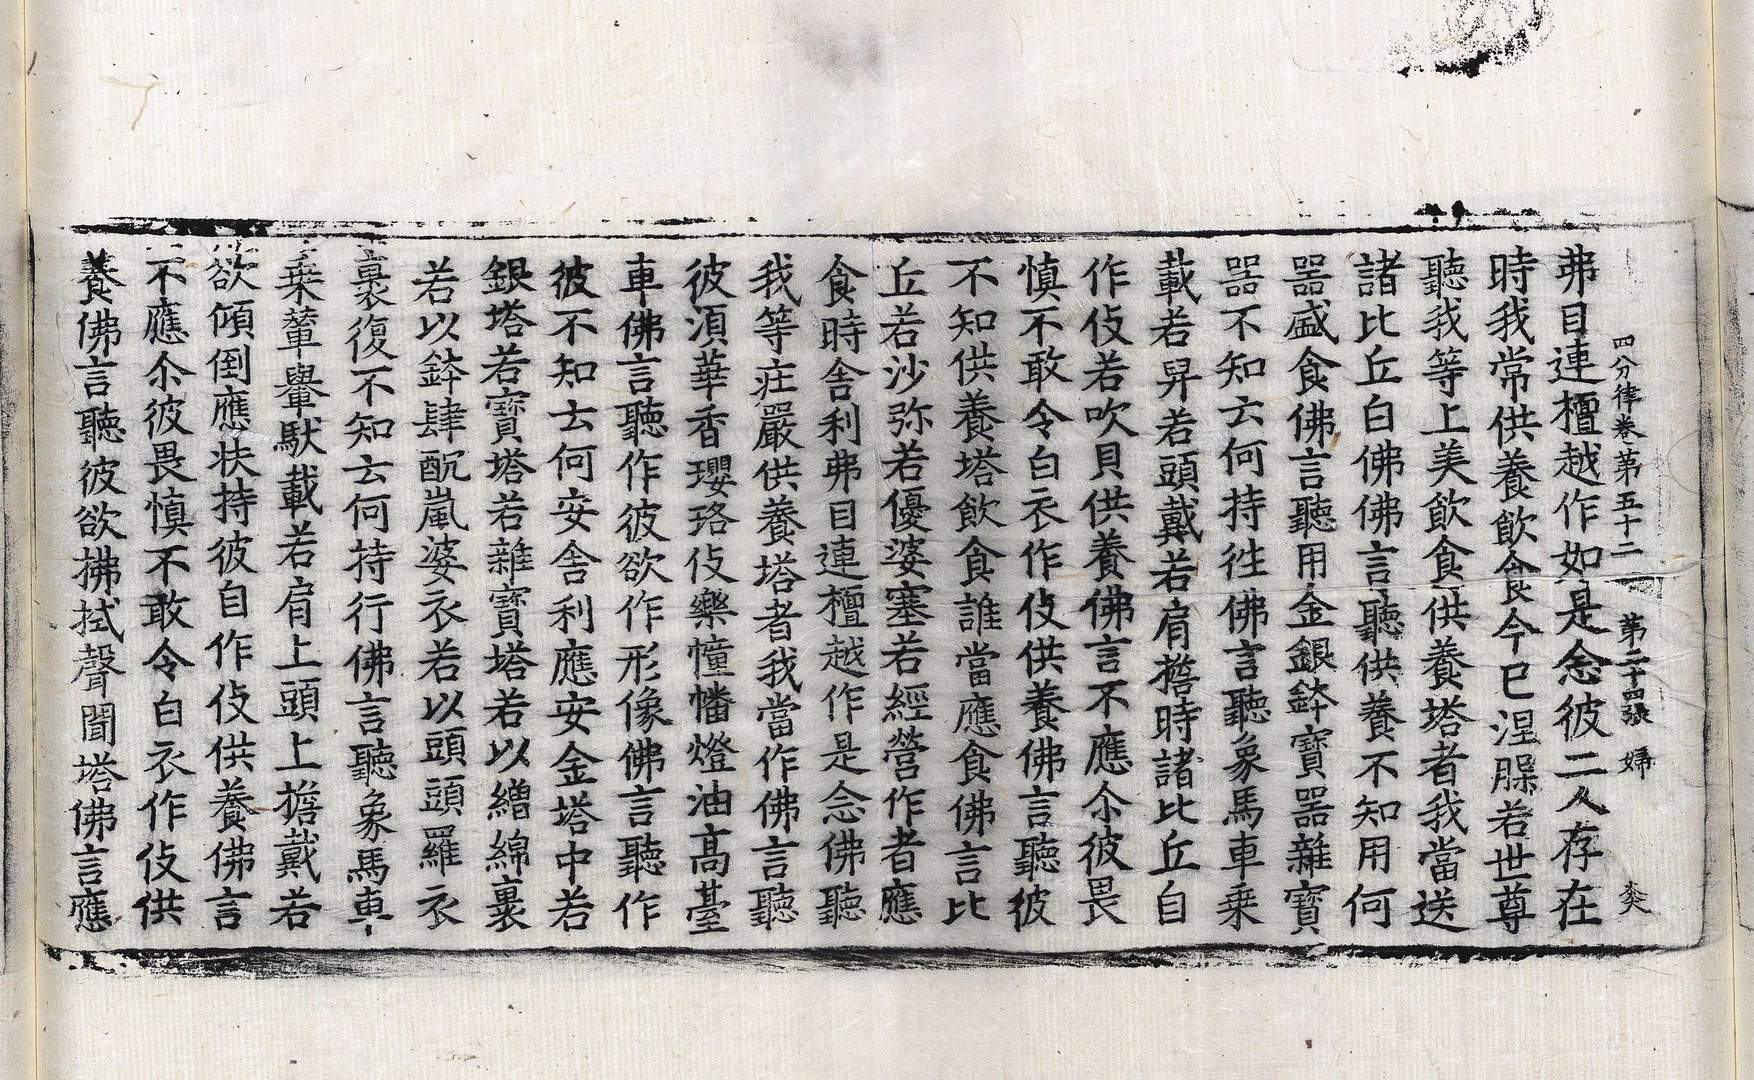 四分律卷第五十二 第二十四張 婦 炎
弗目連檀越作如是念彼二人存在
時我常供養飲食今已涅槃若世尊
聽我等上美飲食供養塔者我當送
諸比丘白佛佛言聽供養不知用何
器盛食佛言聽用金銀鉢寶器雜寶
器不知云何持往佛言聽象馬車乗
載若舁若頭戴若肩擔時諸比丘自
作伎若吹貝供養佛言不應尒彼畏
慎不敢令白衣作伎供養佛言聽彼
不知供養塔飲食誰當應食佛言比
丘若沙弥若優婆塞若經營作者應
食時舍利弗目連檀越作是念佛聽
我等莊嚴供養塔者我當作佛言聽
彼湏華香瓔珞伎樂幢幡燈油高臺
車佛言聽作彼欲作形像佛言聽作
彼不知云何安舍利應安金塔中若
銀塔若寶塔若雜寶塔若以繒綿裹
若以鉢肆酖嵐婆衣若以頭頭羅衣
裹復不知云何持行佛言聽象馬車
乗輦轝馱載若肩上頭上擔戴若
欲傾倒應扶持彼自作伎供養佛言
不應尒彼畏慎不敢令白衣作伎供
養佛言聽彼欲拂拭聲聞塔佛言應